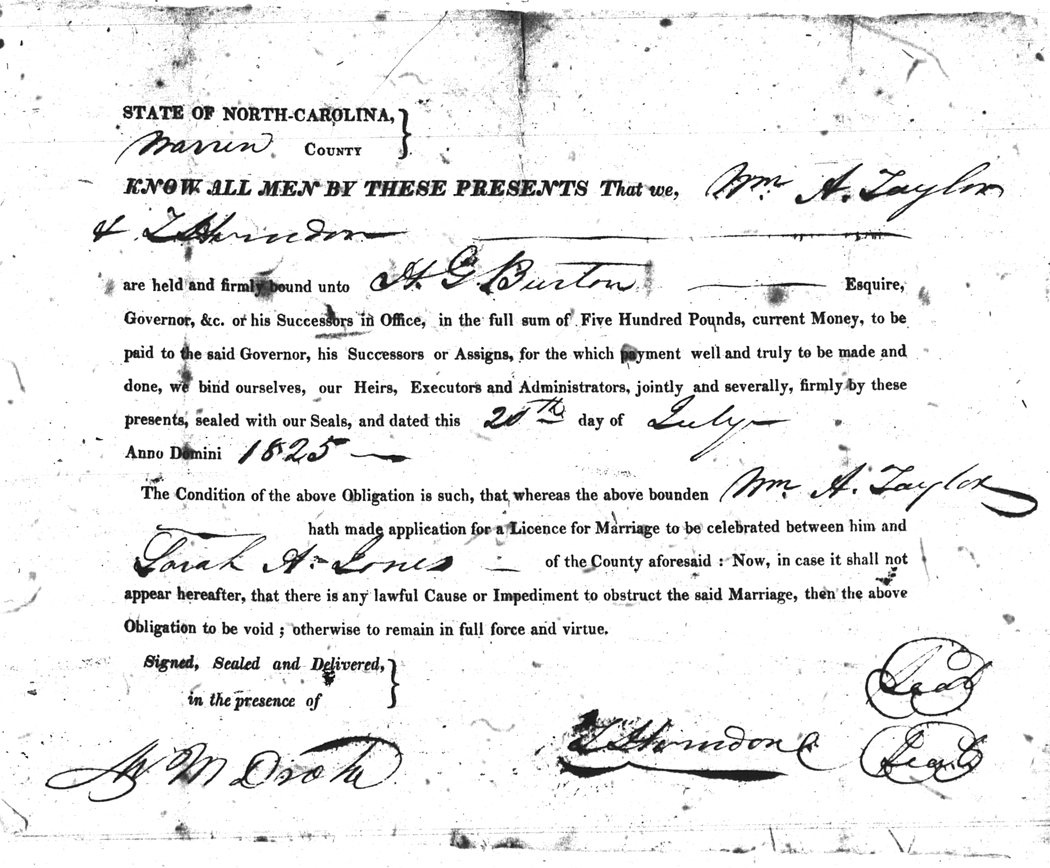 STATE OF NORTH-CAROLINA,
Warren COUNTY
KNOW ALL MEN BY THESE PRESENTS That we, Wm A. Taylor
& Herndon
are held and firmly bound unto H. G. Burton Esquire,
Governor, &c. or his Successors in Office, in the full sum of Five Hundred Pounds, current Money, to be
paid to the said Governor, his Successors or Assigns, for the which payment well and truly to be made and
done, we bind ourselves, our Heirs, Executors and Administrators, jointly and severally, firmly by these
presents, sealed with our Seals, and dated this 20th day of July
Anno Domini 1825
The Condition of the above Obligation is such, that whereas the above bounden Wm. A. Taylor
hath made application for a Licence for Marriage to be celebrated between him and
Sarah A. Jones of the County aforesaid : Now, in case it shall not
appear hereafter, that there is any lawful Cause or Impediment to obstruct the said Marriage, then the above
Obligation to be void ; otherwise to remain in full force and virtue.
Signed, Sealed and Delivered,
in the presence of
Seal
Herndon Seal
M Drake